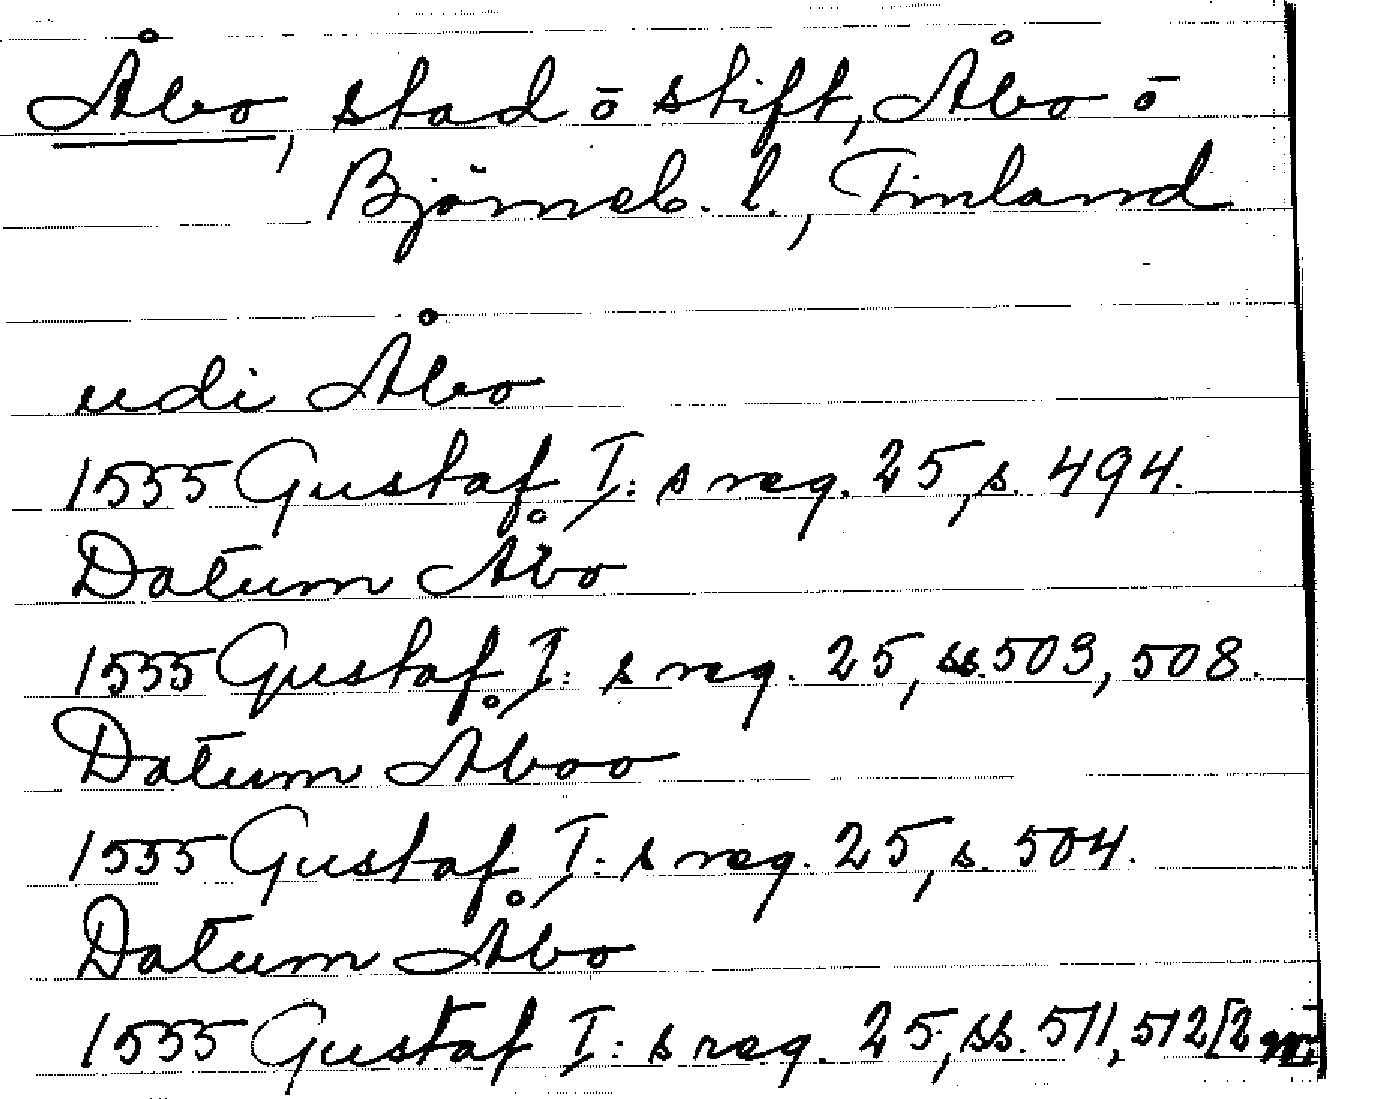 Åbo, stad ō stift, Åbo ō
Björneb. l., Finland
udi Åbo
1555 Gustaf I: s reg. 25, s. 494.
Datum Åbo
1555 Gustaf I: s reg. 25, ss. 503, 508.
Datum Åboo
1555 Gustaf I: s reg. 25, s. 504.
Datum Åbo
1555 Gustaf I: s reg. 25, ss. 511, 512 [2